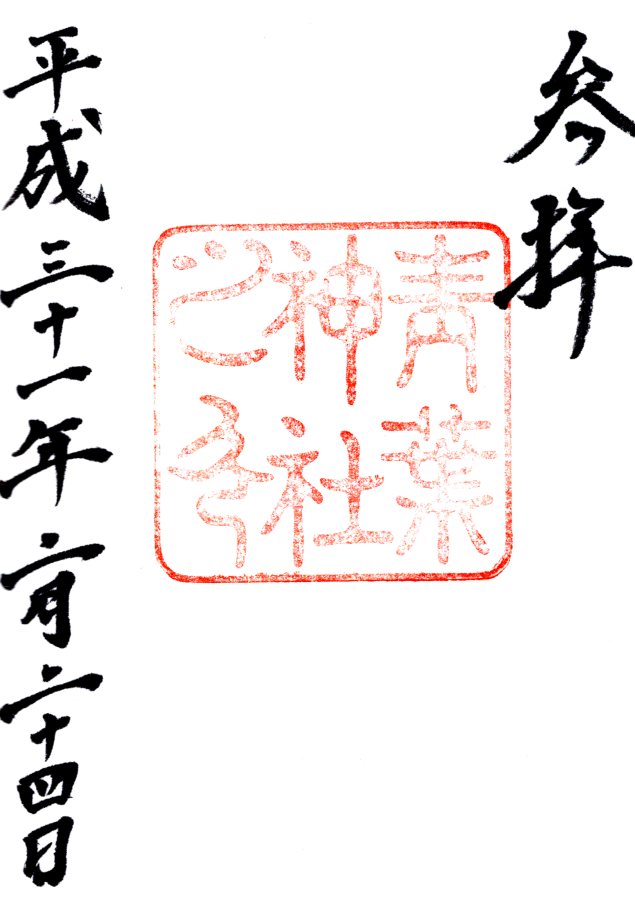 参拝
青葉
神社
之印
平成三十一年二月二十四日